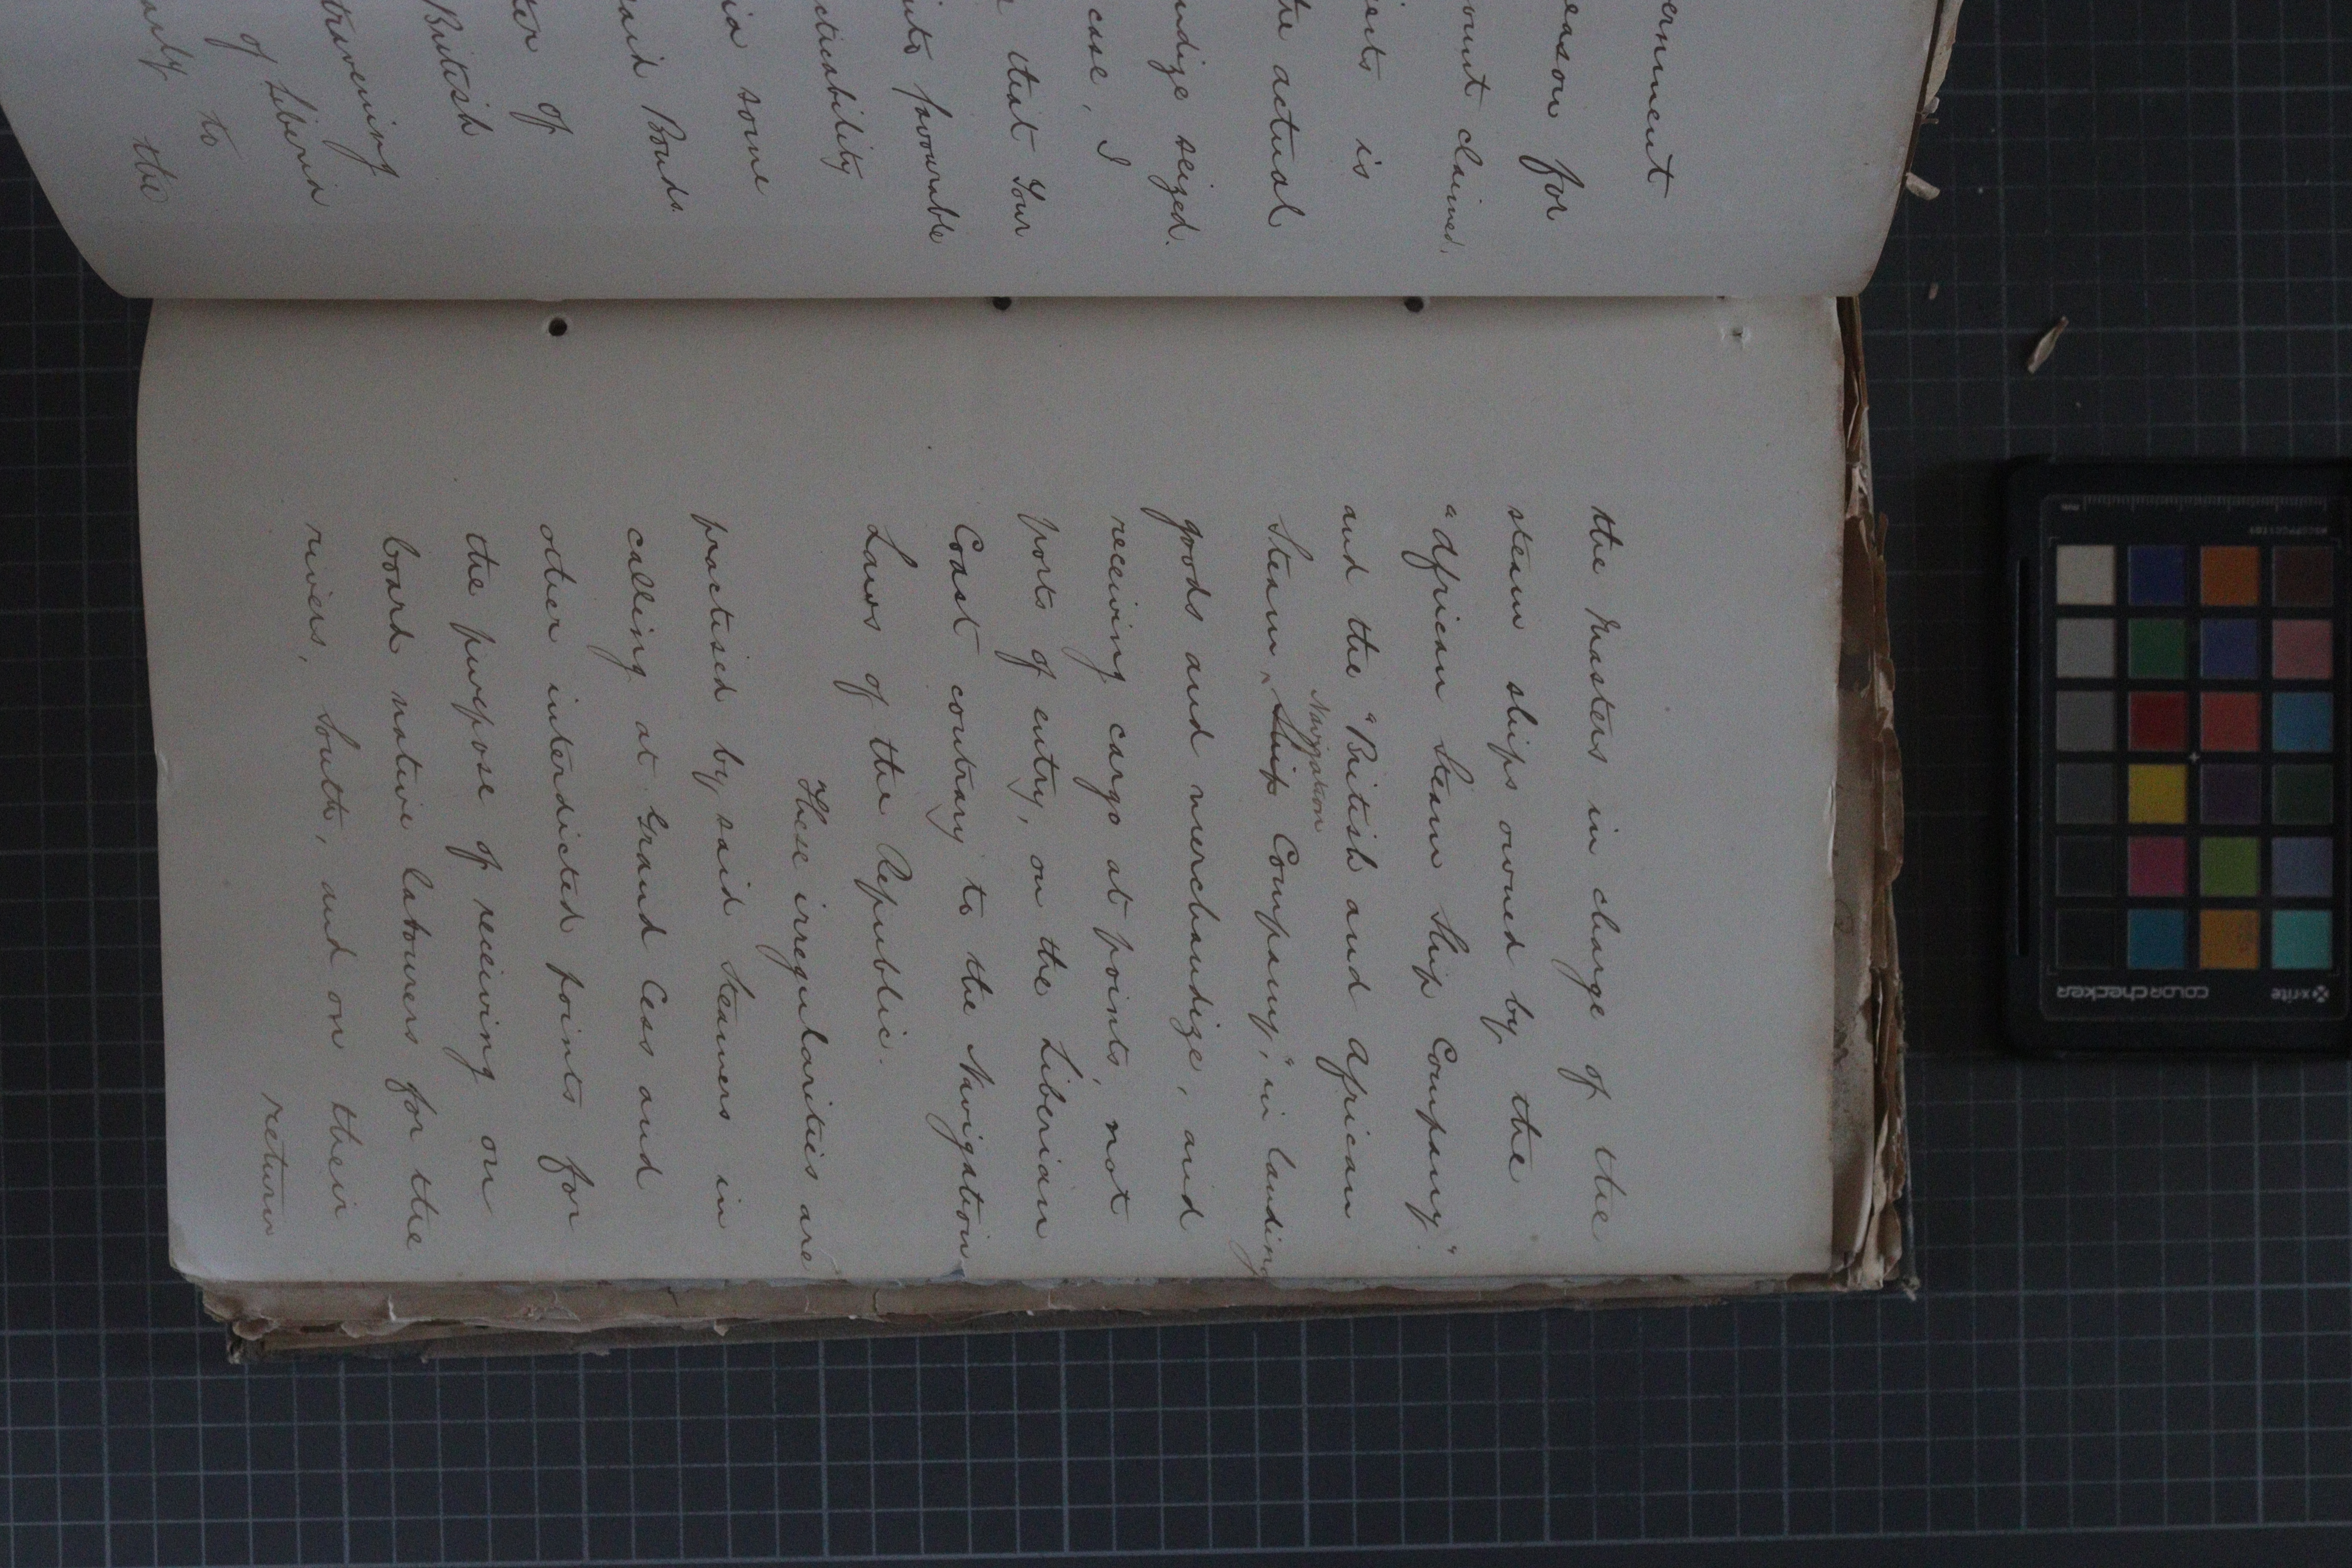 ernment
eason for
ount claimed,
is
the actual
ndize seized.
case, I
that Your
nts favourable
cticability
ia some
said Bonds.
ter of
British
travening
of Liberia
to
the
the Masters in charge of the
steam ships owned by the
"African Steam Ship Company"
and the "British and African
Navigation
Steam ^ Ship Company," in landing
goods and merchandize, and
receiving cargo at points, not
ports of entry, on the Liberian
Coast contrary to the Navigation
Laws of the Republic.
These irregularities are
practised by said Steamers in
calling at Grand Cess and
other interdicted points for
the purpose of receiving on
board native labourers for the
rivers, South, and on their
return
x-rite
colorchecker